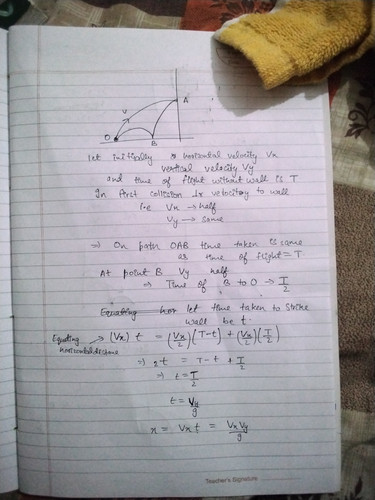 A
v
O
B
let initially horizontal velocity Vx
vertical velocity Vy
and time of flight without wall is T
In first collision ⊥r velocity to wall
i.e Vx → half
Vy → same
⇒ On path OAB time taken is same
as time of flight = T
At point B Vy half
⇒ Time of B to O → T/2
Equating let time taken to strike
wall be t
Equating horizontal distance → (Vx) t = (Vx/2)(T-t) + (Vx/2)(T/2)
⇒ 2t = T-t + T/2
⇒ t = T/2
t = Vy/g
x = Vxt = VxVy/g
Teacher's Signature